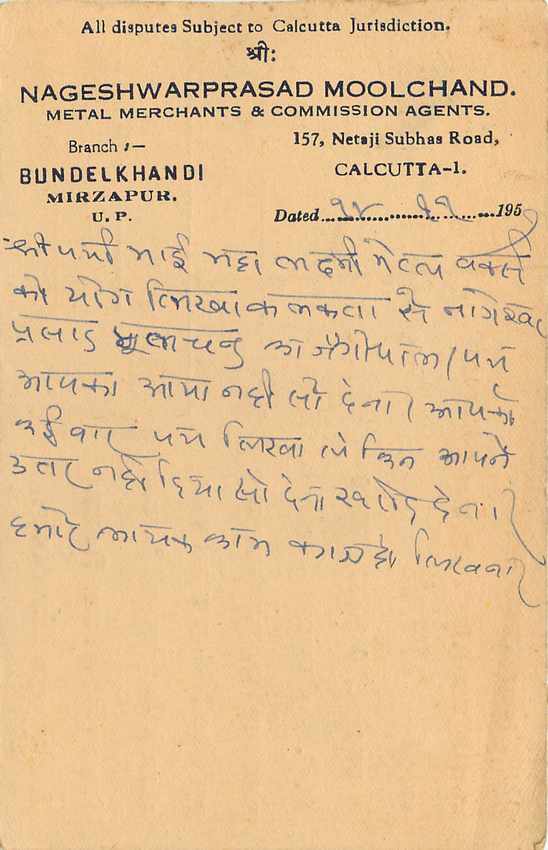 All disputes Subject to Calcutta Jurisdiction.
श्री:
NAGESHWARPRASAD MOOLCHAND.
METAL MERCHANTS & COMMISSION AGENTS.
Branch :—
BUNDELKHANDI
MIRZAPUR.
U. P.
157, Netaji Subhas Road,
CALCUTTA-1.
Dated 195
श्री भाई महा लक्ष्मी मेटल वर्क्स
को योग लिखा कलकता से नागेश्वर
प्रसाद मूलचन्द का
आपका आया नही सो देना। आपको
कई बार पत्र लिखा लेकिन आपने
उतर नही दिया सो देना
हमारे लायक काम काज हो लिखना।